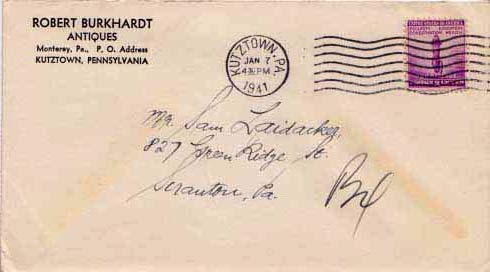 ROBERT BURKHARDT
ANTIQUES
Monterey, Pa., P. O. Address
KUTZTOWN, PENNSYLVANIA
KUTZTOWN, PA.
JAN 7
4 PM
1941
Mr. Sam Laidacker,
827 Green Ridge St.
Scranton, Pa.